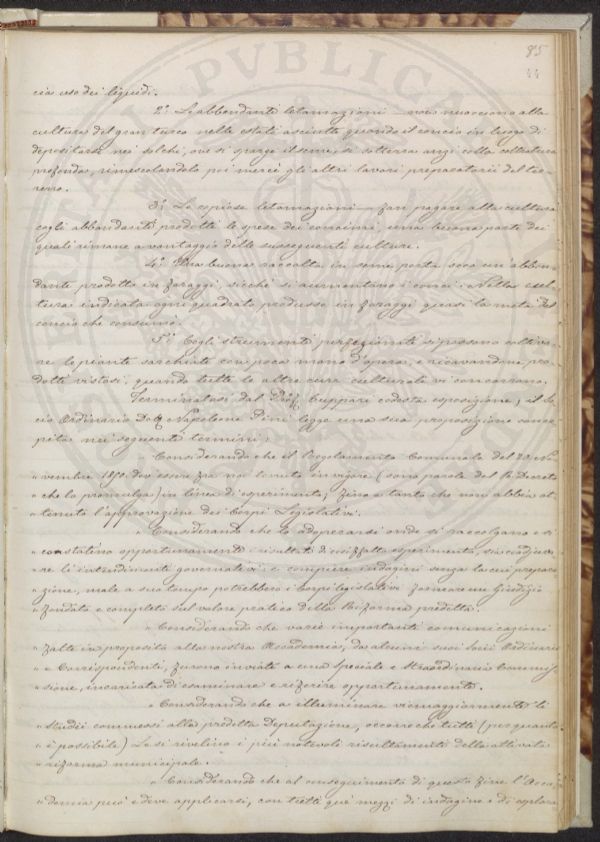 85
44
cia uso dei liquidi.
2.° Le abbondanti letamazioni non nuocciono alla
cultura del gran turco nelle estati asciutte quando il concio in luogo di
depositarsi nei solchi, ove si sparge il seme, si sotterra anzi colla coltratura
profonda, rimescolandolo poi mercè gli altri lavori preparatorii del ter-
reno.
3.° Le copiose letamazioni fan pagare alla cultura
cogli abbondanti prodotti le spese dei concimi, una buona parte dei
quali rimane a vantaggio delle susseguenti culture.
4.° Una buona raccolta in semi porta seco un'abbon-
dante prodotto in foraggi, sicchè si aumentano i conci. Nella cul-
tura indicata ogni quadrato produsse in foraggi quasi la metà del
concio che consumò.
5.° Cogli strumenti perfezionati si possono coltiva-
re le piante sarchiate con poca mano d'opera, e ricavandone pro-
dotti vistosi, quando tutte le altre cure culturali vi concorrono.
Terminatasi dal Prof. Cuppari codesta esposizione, il So-
cio Ordinario Dott. Napoleone Pini legge una sua proposizione conce-
pita nei seguenti termini:
" Considerando che il Regolamento Comunale del 20 No-
" vembre 1850. dev'essere fra noi tenuto in vigore (sono parole del R. Decreto
" che lo promulga) in linea di esperimento, fino a tanto che non abbia ot-
" tenuto l'approvazione dei Corpi Legislativi.
" Considerando che lo adoperarsi onde si raccolgano e si
" constatino opportunamente i resultati di siffatto esperimento, sia coadjuva-
" re gl'intendimenti governativi e compiere indagini senza la cui prepara-
" zione, male a suo tempo potrebbero i Corpi legislativi formare un Giudizio
" fondato e completo sul valore pratico della Riforma predetta.
" Considerando che varie importanti comunicazioni
" fatte in proposito alla nostra Accademia, da alcuni suoi Socii Ordinarii
" e Corrispondenti, furono inviate a una Speciale e Straordinaria Commis-
" sione, incaricata di esaminare e riferire opportunamente.
" Considerando che a illuminare vie maggiormente li
" Studii commessi alla predetta Deputazione, occorre che tutti (per quanto
" è possibile) Le si rivelino i più notevoli resultamenti della attivata
" riforma municipale.
" Considerando che al conseguimento di questo fine l'Acca-
" demia può e deve applicarsi, con tutti quei mezzi di indagine e di esplora-